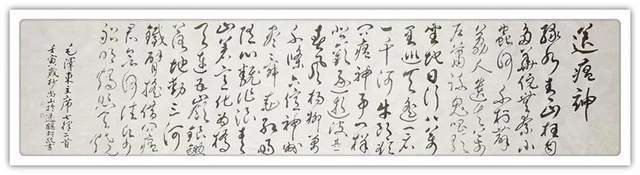 送瘟神
绿水青山枉自
多华佗无奈小
虫何千村薜
荔人遗矢万
户萧疏鬼唱歌
坐地日行八万
里巡天遥看
一千河牛郎欲
问瘟神事一样
悲欢逐逝波其二
春风杨柳万
千条六亿神州
尽舜尧红雨
随心翻作浪青
山着意化为桥
天连五岭银锄
落地动三河
铁臂摇借问瘟
君欲何往纸
船明烛照天烧
毛泽东主席七律二首
壬寅岁秋